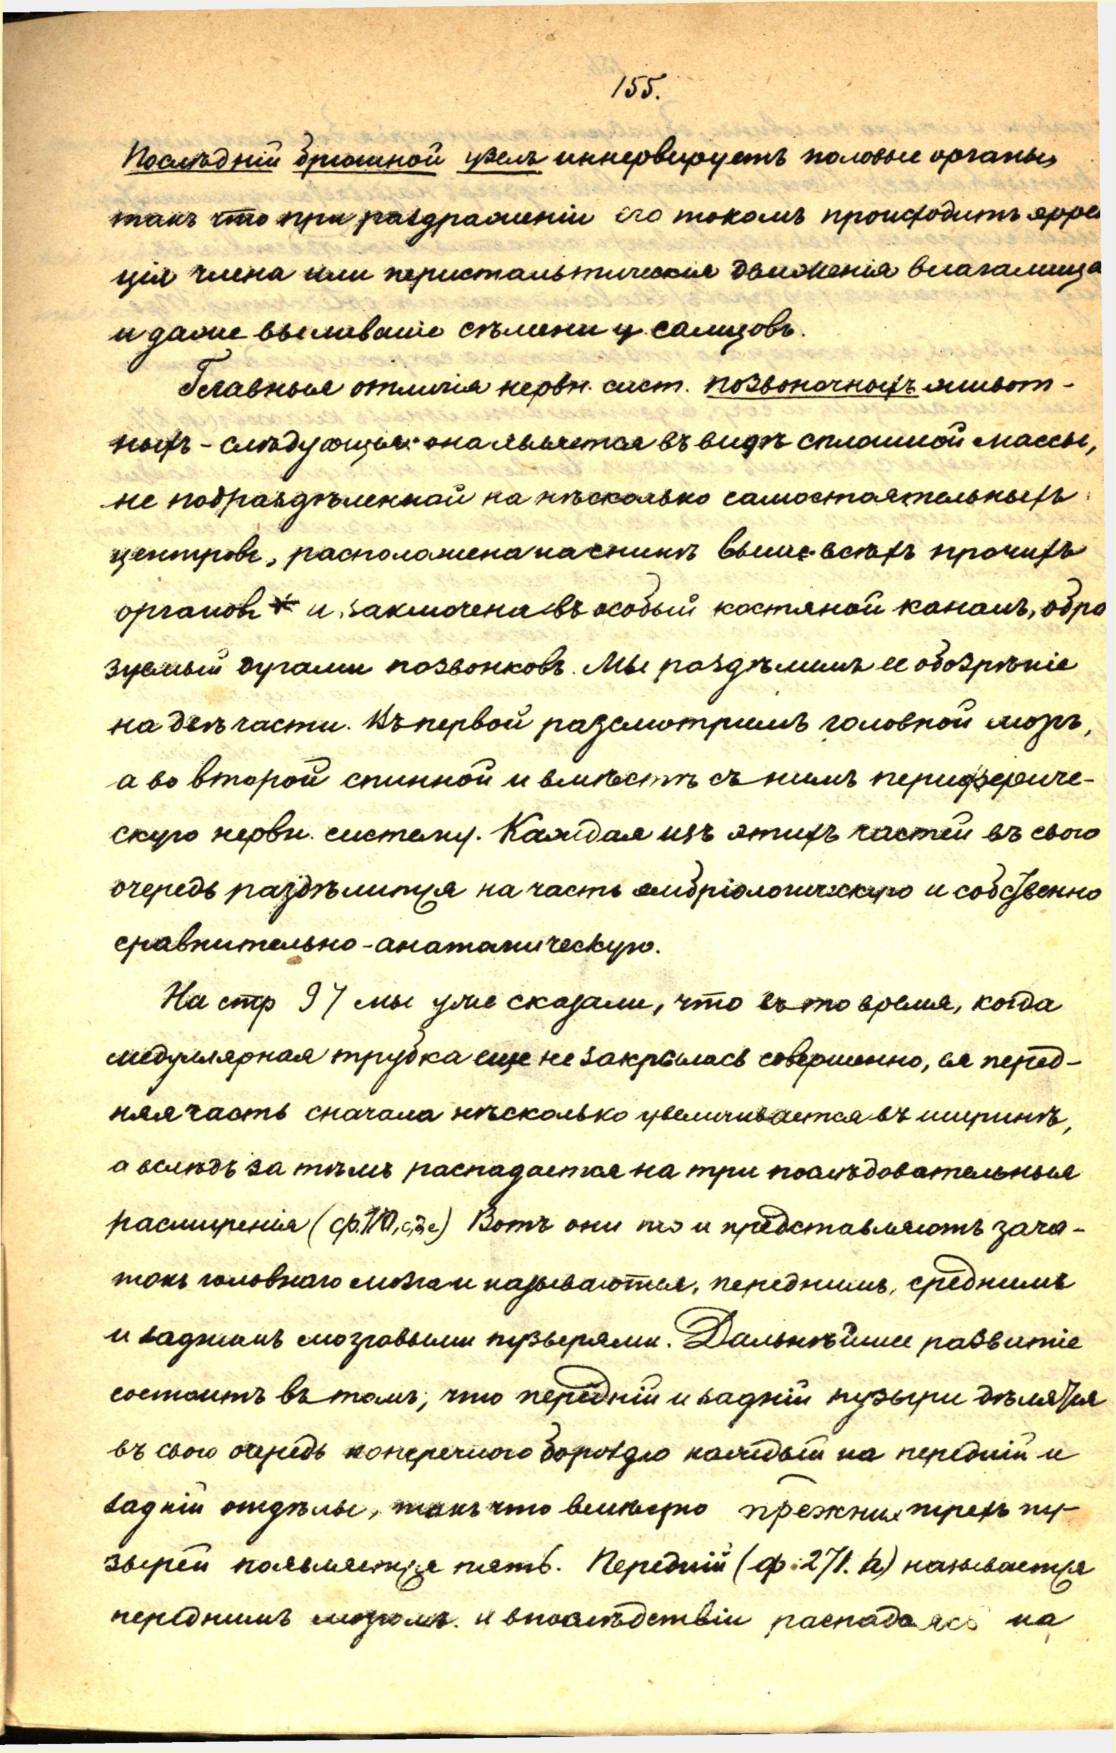 155.
Послѣдній брюшной узелъ иннервируетъ половые органы,
такъ что при раздраженіи его токомъ происходитъ эррек
ція члена или перистальтическія движенія влагалища
и даже выливаніе сѣмени у самцовъ.
Главныя отличія нервн. сист. позвоночныхъ живот-
ныхъ - слѣдующія: она является въ видѣ сплошной массы,
не подраздѣленной на нѣсколько самостоятельныхъ
центровъ, расположена на спинѣ выше всѣхъ прочихъ
органовъ и заключена въ особый костяной каналъ, обра
зуемый дугами позвонковъ. Мы раздѣлимъ ее обозрѣніе
на двѣ части. Въ первой разсмотримъ головной мозгъ,
а во второй спинной и вмѣстѣ съ нимъ перифериче-
скую нервн. систему. Каждая изъ этихъ частей въ свою
очередь раздѣлится на часть эмбріологическую и собственно
сравнительно-анатомическую.
На стр 97 мы уже сказали, что въ то время, когда
медуллярная трубка еще не закрылась совершенно, ея перед-
няя часть сначала нѣсколько увеличивается въ ширинѣ,
а вслѣдъ за тѣмъ распадается на три послѣдовательныя
расширенія Вотъ они то и представляютъ зача-
токъ головнаго мозга и называются, переднимъ, среднимъ
и заднимъ мозговыми пузырями. Дальнѣйшее развитіе
состоитъ въ томъ, что передній и задній пузыри дѣлятся
въ свою очередь поперечною бороздою каждый на передній и
задній отдѣлы, такъ что вмѣсто прежнихъ трехъ пу-
зырей появляется пять. Передній (ф. 271. h) называется
переднимъ мозгомъ. и впослѣдствіи распадаясь на